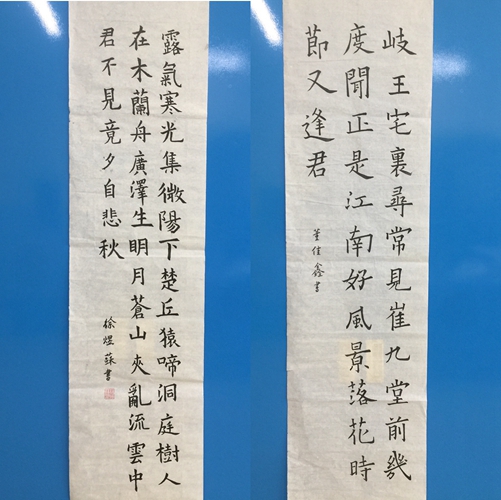 露氣寒光集微陽下楚丘猿啼洞庭樹人
在木蘭舟廣澤生明月蒼山夾亂流雲中
君不見竟夕自悲秋
徐煜書
岐王宅裏尋常見崔九堂前幾
度聞正是江南好風景落花時
節又逢君
董佳鑫書